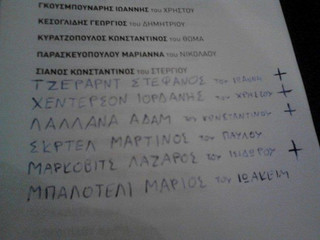 ΓΚΟΥΣΜΠΟΥΝΑΡΗΣ ΙΩΑΝΝΗΣ του ΧΡΗΣΤΟΥ
ΚΕΣΟΓΛΙΔΗΣ ΓΕΩΡΓΙΟΣ του ΔΗΜΗΤΡΙΟΥ
ΚΥΡΑΤΖΟΠΟΥΛΟΣ ΚΩΝΣΤΑΝΤΙΝΟΣ του ΘΩΜΑ
ΠΑΡΑΣΚΕΥΟΠΟΥΛΟΥ ΜΑΡΙΑΝΝΑ του ΝΙΚΟΛΑΟΥ
ΣΙΑΝΟΣ ΚΩΝΣΤΑΝΤΙΝΟΣ του ΣΤΕΡΓΙΟΥ
ΤΖΕΡΑΡΝΤ ΣΤΕΦΑΝΟΣ του +
ΧΕΝΤΕΡΣΟΝ ΙΟΡΔΑΝΗΣ του ΧΡΗΣΤΟΥ +
ΛΑΛΛΑΝΑ ΑΔΑΜ του ΚΩΝΣΤΑΝΤΙΝΟΥ +
ΣΚΡΤΕΛ ΜΑΡΤΙΝΟΣ του ΠΑΥΛΟΥ
ΜΑΡΚΟΒΙΤΣ ΛΑΖΑΡΟΣ του ΙΣΙΔΩΡΟΥ +
ΜΠΑΛΟΤΕΛΙ ΜΑΡΙΟΣ του ΙΩΑΚΕΙΜ